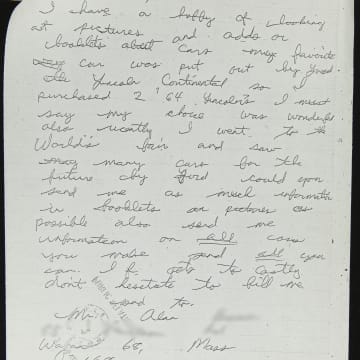 I have a hobby of looking
at pictures and adds or
booklets about cars my favorite
car was put out by ford
the Lincoln Continental so I
purchased 2 '64 Lincoln's I must
say my choice was wonderful
also recently I went to the
World's fair and saw
many cars for the
future by ford could you
send me as much information
in booklets or pictures as
possible also send me
information on all cars
you make and all your
can. If gets to costly
don't hesetate to bill me
send to.
Mr. Alan
68, Mass